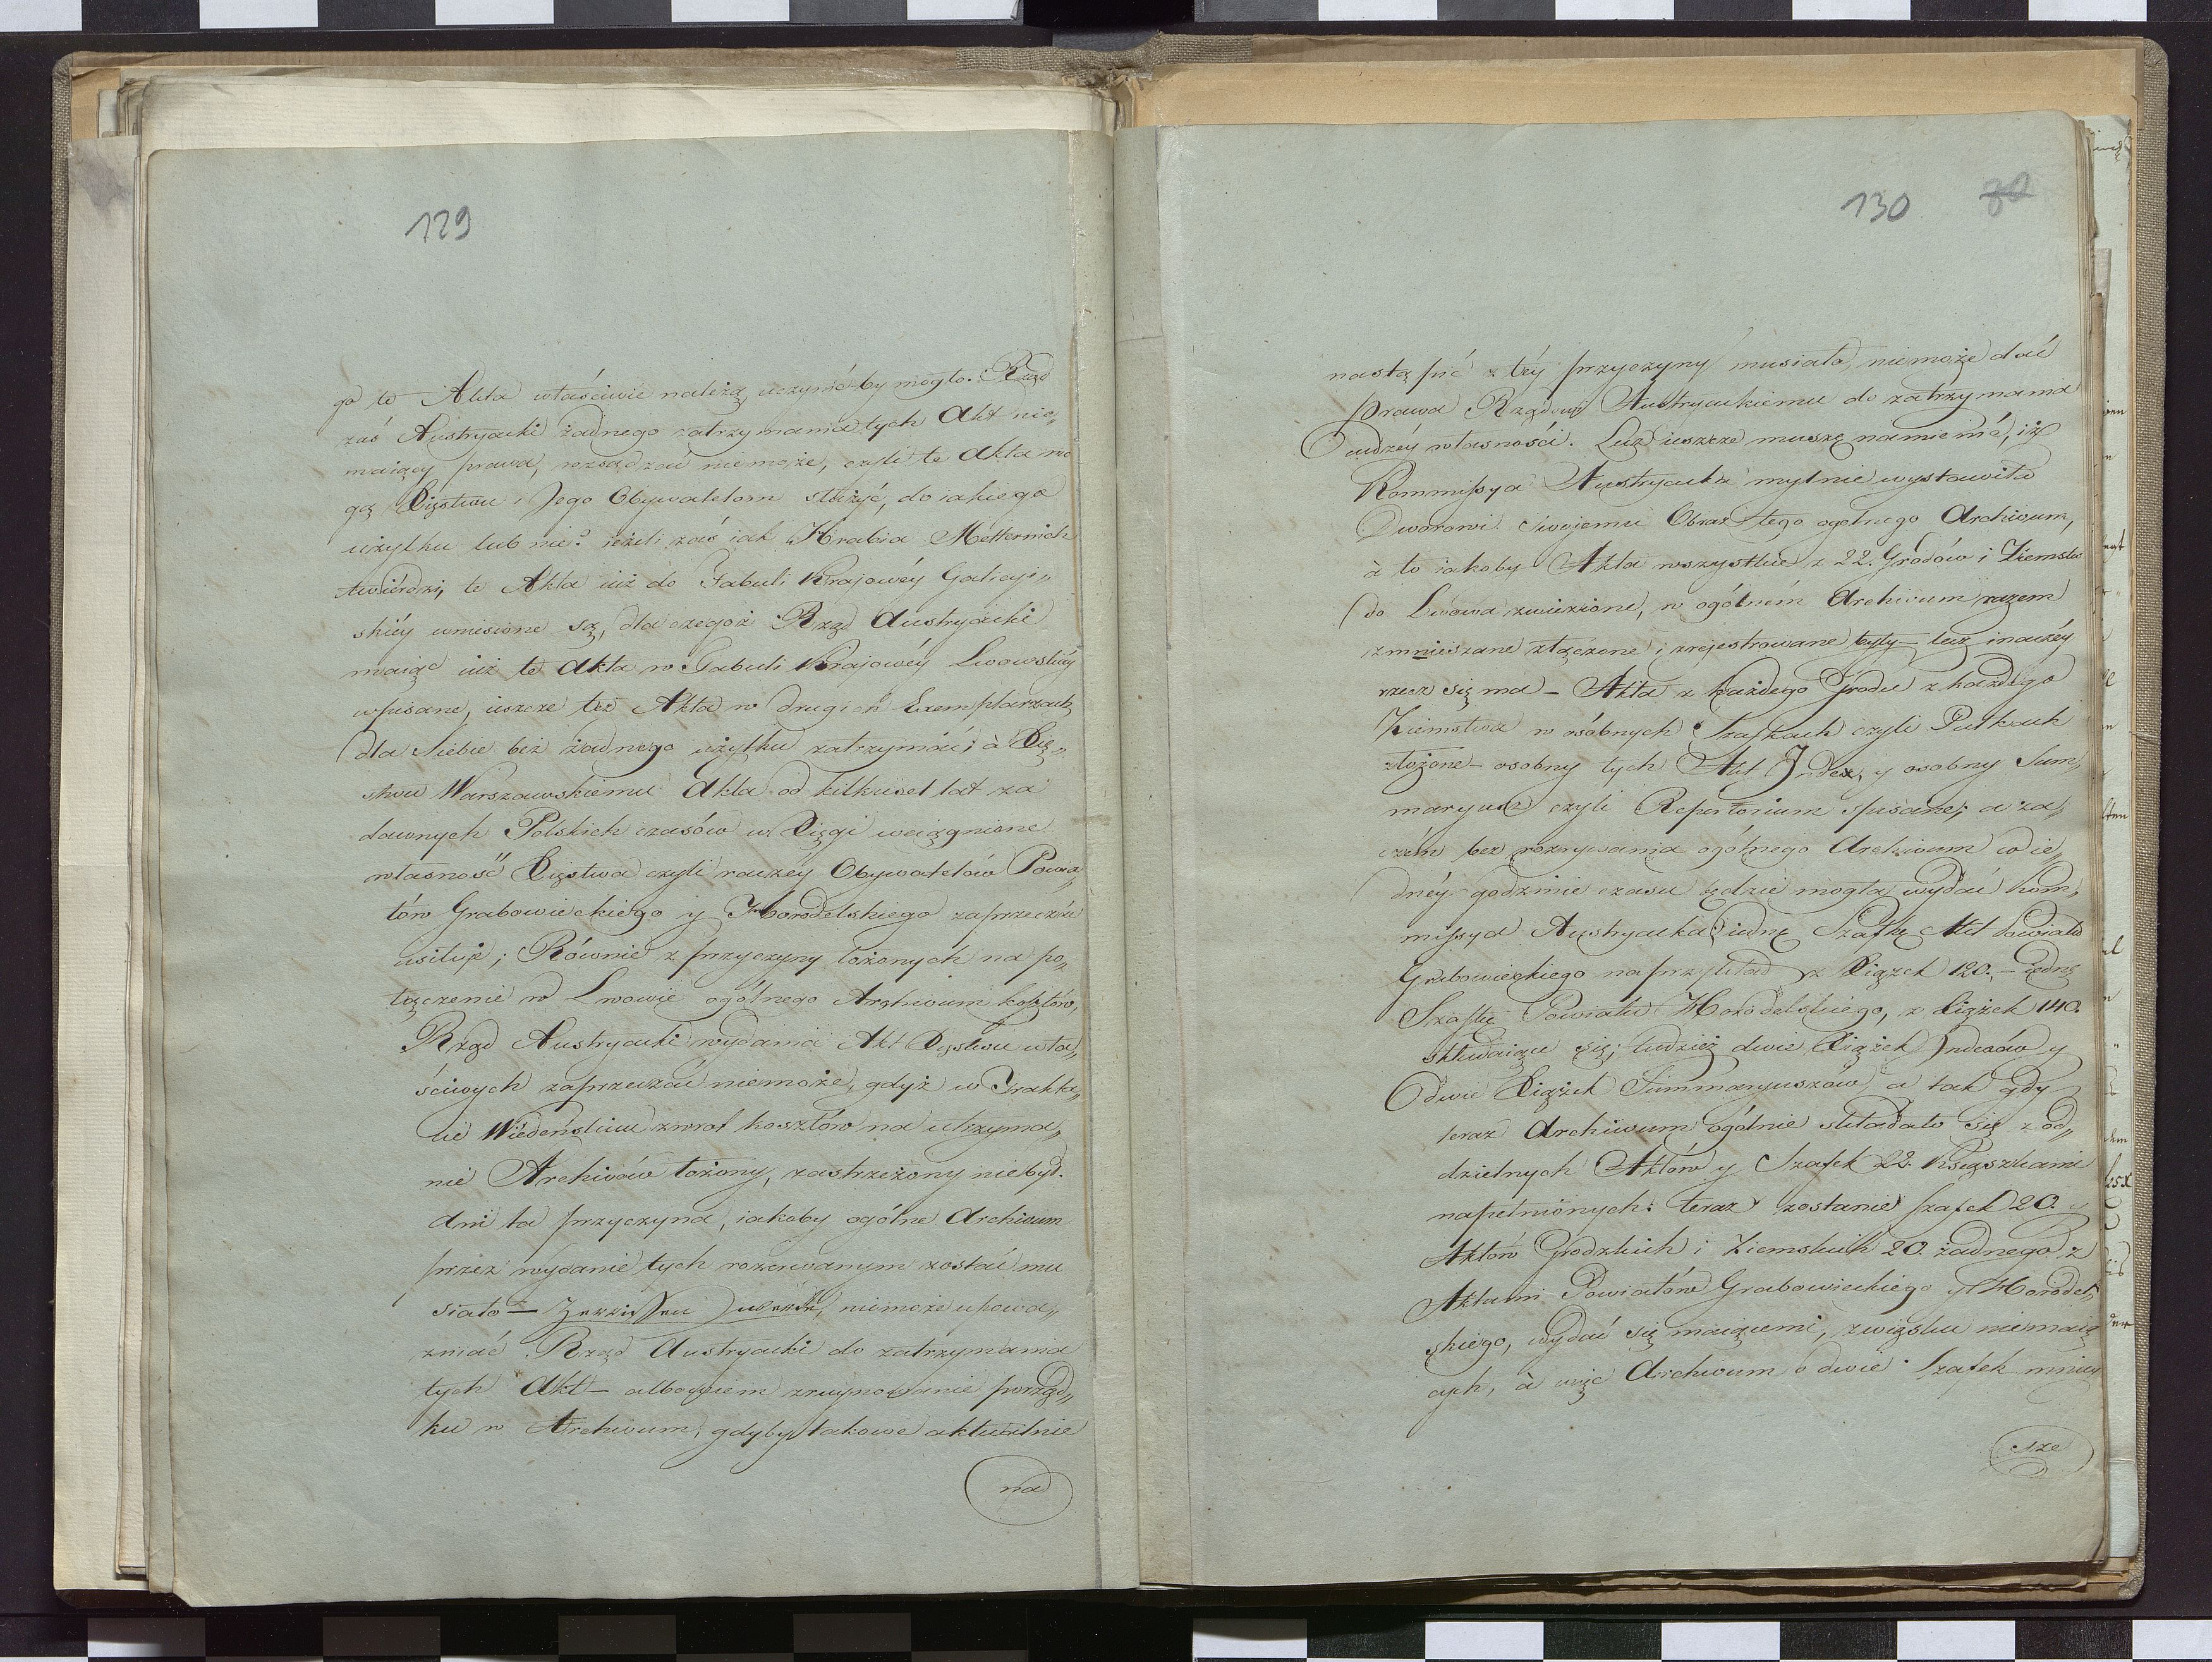 129
go te Akta właściwie należą, uczynić by mogło. Rząd
zaś Austryacki żadnego zatrzymania tych Akt nie„
maiący prawa, rozsądzać niemoże, czyli te Akta mo
gą Xięstwu i Jego Obywatelom służyć, do iakiego
użytku lub nie? ieżeli zaś iak Hrabia Metternich
twierdzi, te Akta iuż do Tabuli Krajowéy Galicyi„
skiéy wniesione są, dla czegoż Rząd Austryacki
maiąc iuż te Akta w Tabuli Krajowéy Lwowskiéy
wpisane, ieszcze też Akta w drugich Exemplarzach
dla Siebie bez żadnego użytku zatrzymać; à Xię„
stwu Warszawskiemu Akta od kilkuset lat za
dawnych Polskich czasów w Xięgi wciągnione
własność Xięstwa czyli raczéy Obywatelów Powia„
tów Grabowieckiego y Horodelskiego zaprzeczać
usiłuje; Równie z przyczyny łożonych na po„
łączenie w Lwowie ogólnego Archivum kosztów,
Rząd Austryacki wydania Akt Xięstwu wła„
ściwych zaprzeczać niemoże, gdyż w Trakta„
cie Wiedeńskim zwrot kosztów na utrzyma„
nie Archivów łożony, zastrzeżony niebył.
Ani ta przyczyna, iakoby ogólne Archivum
przez wydanie tych rozerwanym zostać mu
siało — Zerrissen niemoże upowa„
zniać Rząd Austryacki do zatrzymania
tych Akt — albowiem zrujnowanie porząd„
ku w Archivum, gdyby takowe aktualnie
na
130 80
nastąpić z téy przyczyny musiało, niemoże dać
prawa Rządowi Austryackiemu do zatrzymania
Cudzéy własności. Lecz ieszcze muszę namienić, iż
Kommissya Austryacka mylnie wystawiła
Dworowi swojemu Obraz tego ogólnego Archivum,
à to iakoby Akta wszystkie z 22. Grodów i Ziemstw
do Lwowa zwiezione, w ogólném Archivum razem
zmnieiszane złączone i zrejestrowane były — lecz inaczéy
rzecz się ma — Akta z każdego Grodu z każdego
Ziemstwa w osóbnych Szafkach czyli Pułkach
złożone — osobny tych Akt Index, y osobny Sum„
maryusz czyli Repertorium spisane; a za„
czém bez rozrywania ogólnego Archivum w ie„
dnéy godzinie czasu będzie mogła wydać Kom„
missya Austryacka iednę Szafkę Akt Powiatu
Grabowieckiego naprzykład z Xiążek 120. — iednę
Szafkę Powiatu Horodelskiego, z Xiążek 140.
składaiącą się; tudzież dwie Xiążek Indexów y
dwie Xiążek Summaryuszów, a tak gdy
teraz Archivum ogólnie składało się z od„
dzielnych Aktów y Szafek 22. Książkami
napełnionych: teraz zostanie szafek 20. y
Aktów Grodzkich i Ziemskich 20. żadnego z
Aktami Powiatów Grabowieckiego y Horodel„
skiego, wydać się maiącemi, związku niemaią
cych, à więc Archivum o dwie Szafek mniey
sze